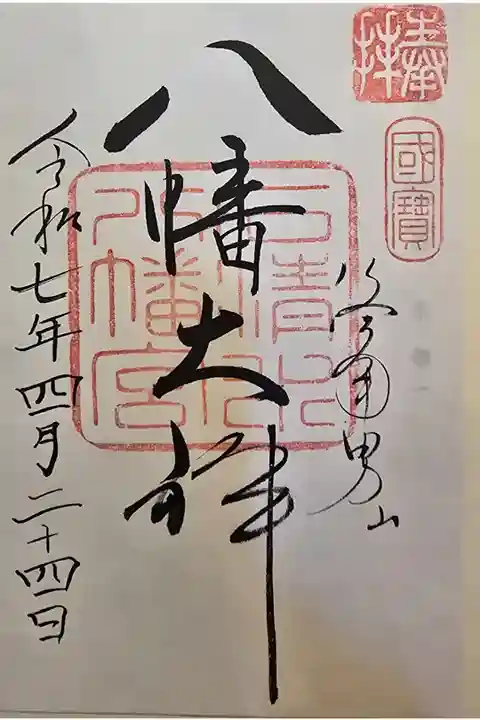 奉拝
國寶
男山
石清水
八幡宮
八幡大神
令和七年四月二十四日